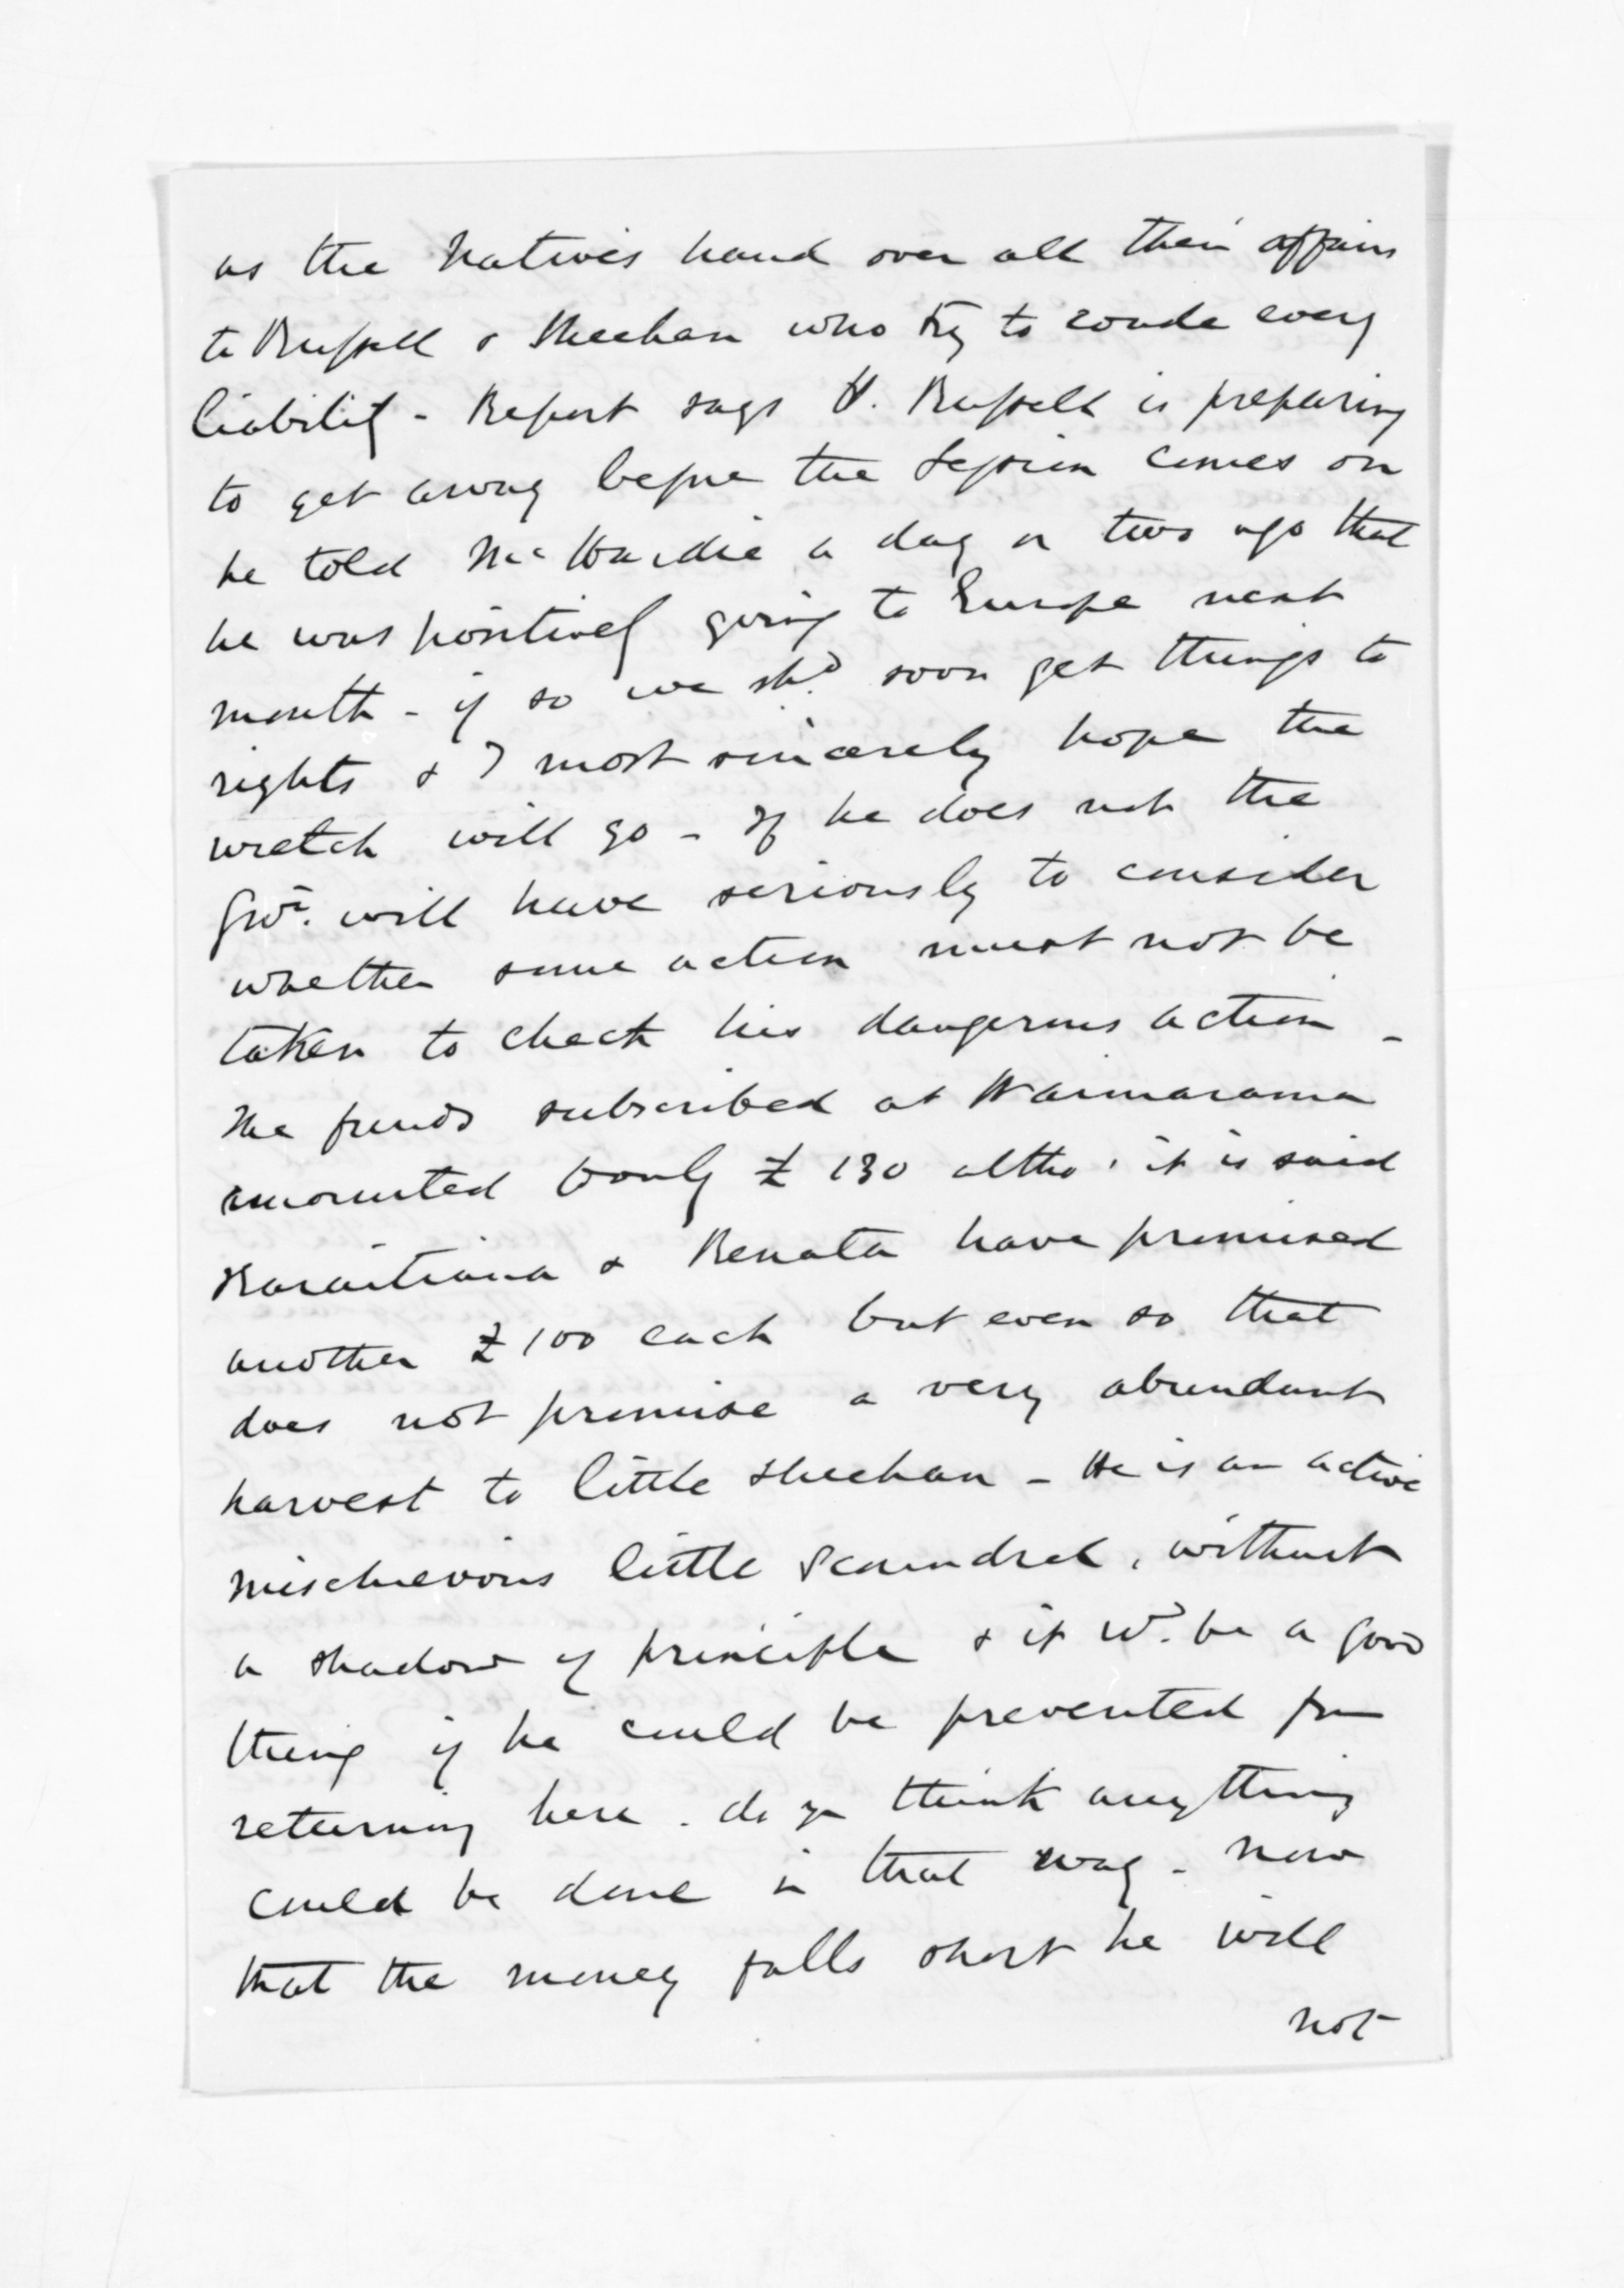 as the Natives hand over all their affairs
to Russell & Sheehan who try to evade every
liability - Report says H. Russell is preparing
to get away before the Session comes on
he told McHardie a day or two ago that
he was positively going to Europe next
month - if so we shd. soon get things to
rights & I most sincerely hope the
wretch will go - If he does not the
Govt. will have seriously to consider
whether some action must not be
taken to check his dangerous action -
The funds subscribed at Waimarama
amounted to only £130 altho' it is said
Karaitiana & Renata have promised
another £100 each but even so that
does not promise a very abundant
harvest to little Sheehan - He is an active
mischievous little scoundrel, without
a shadow of principle & it wd. be a good
thing if he could be prevented from
returning here. do you think anything
could be done in that way - now
that the money falls short he will
not